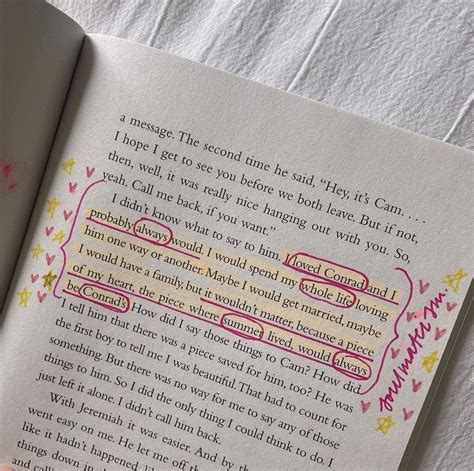 a message. The second time he said, "Hey, it's Cam. . . .
I hope I get to see you before we both leave. But if not,
then, well, it was really nice hanging out with you. So,
yeah. Call me back, if you want."
I didn't know what to say to him. I loved Conrad and I
probably always would. I would spend my whole life loving
him one way or another. Maybe I would get married, maybe
I would have a family, but it wouldn't matter, because a piece
of my heart, the piece where summer lived, would always
be Conrad's. How did I say those things to Cam? How did
I tell him that there was a piece saved for him, too? He was
the first boy to tell me I was beautiful. That had to count for
something. But there was no way for me to say any of those
things to him. So I did the only thing I could think to do. I
just left it alone. I didn't call him back.
With Jeremiah it was easier. And by th
went easy on me. He let me off th
like it hadn't happened, li
things down in
and called